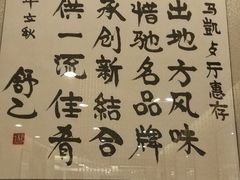 马凯文厅惠存
出地方风味
惜驰名品牌
承创新结合
供一流佳肴
年立秋
舒乙